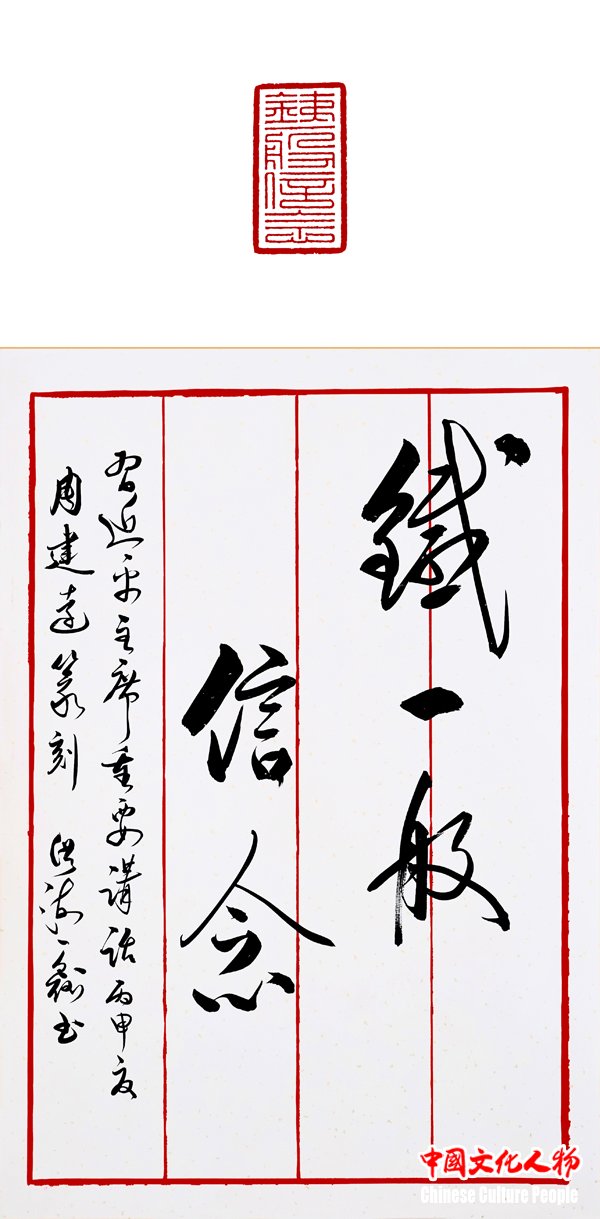 鐵一般信念
鐵一般
信念
習近平主席重要講話丙申夏
周建遠篆刻
书
中國文化人物
Chinese Culture People